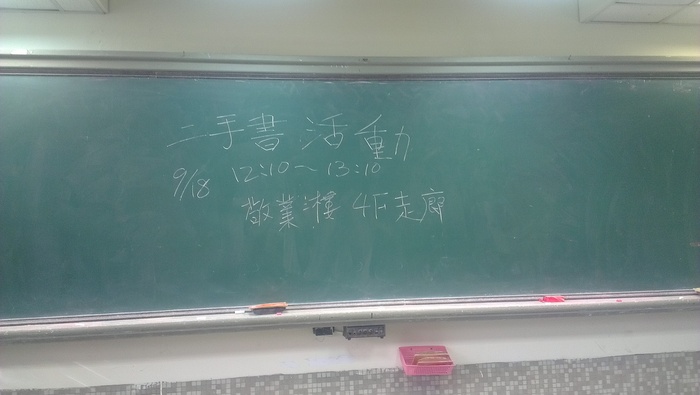 二手書活動
9/18 12:10～13:10
敬業樓 4F走廊